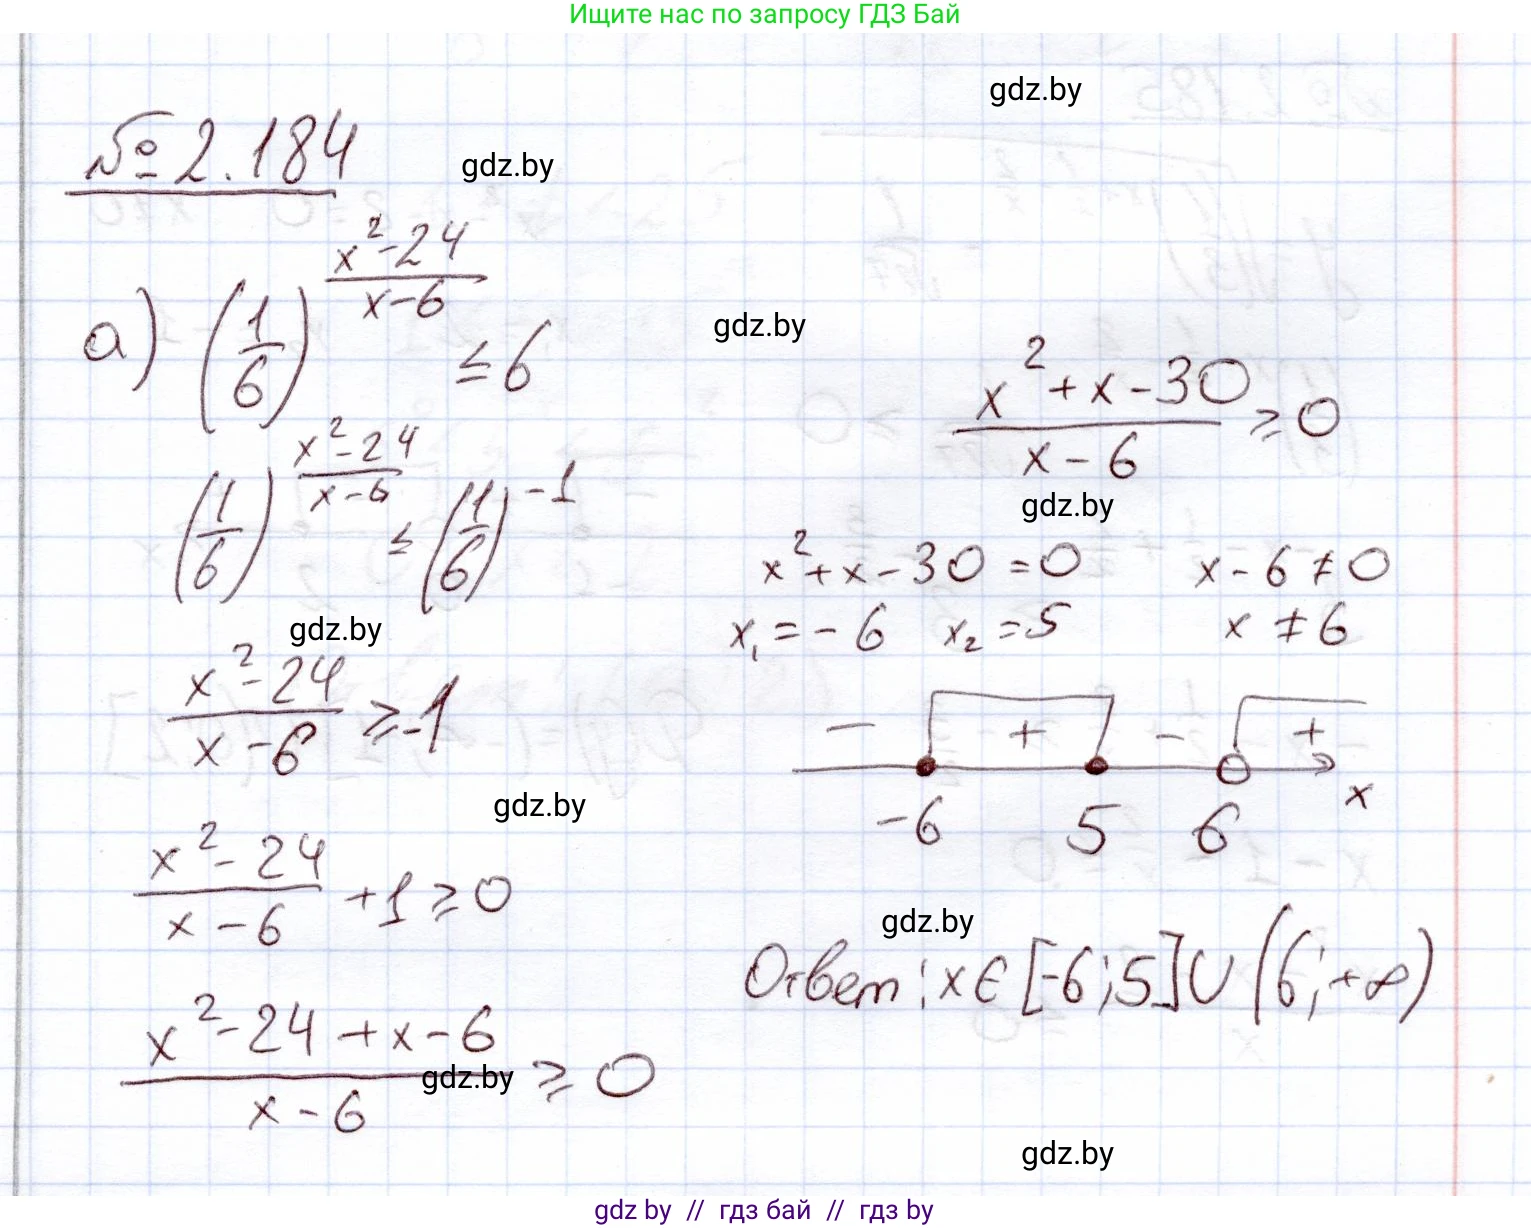 Ищите нас по запросу ГДЗ Бай
gdz.by
№ 2.184
gdz.by
а) (1/6)^((x²-24)/(x-6)) ≤ 6
gdz.by
(1/6)^((x²-24)/(x-6)) ≤ (1/6)^(-1)
gdz.by
(x²-24)/(x-6) ≥ -1
gdz.by
(x²-24)/(x-6) + 1 ≥ 0
(x²-24+x-6)/(x-6) ≥ 0
gdz.by
(x²+x-30)/(x-6) ≥ 0
gdz.by
x²+x-30=0 x-6≠0
x₁=-6 x₂=5 x≠6
- + - +
x
-6 5 6
gdz.by
Ответ: x∈[-6;5]∪(6;+∞)
gdz.by
gdz by // гдз бай // гдз by